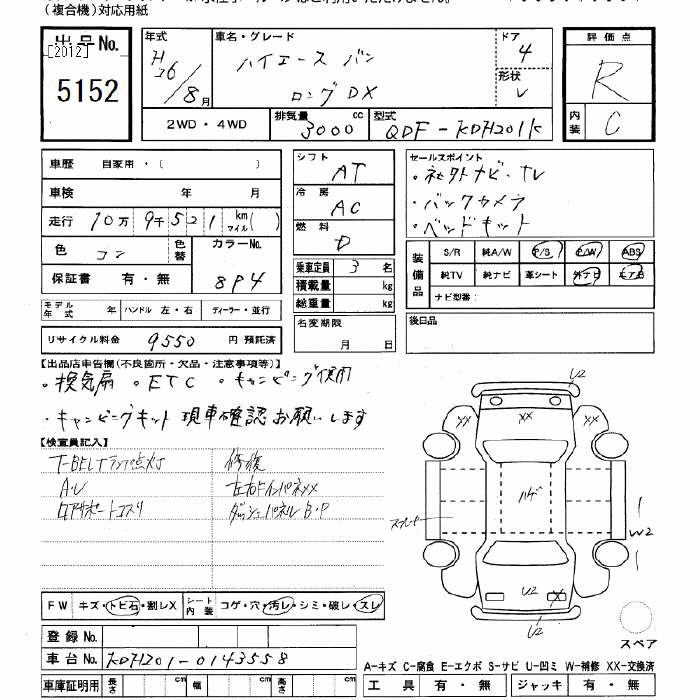 (複合機)対応用紙
出品No. 年式 車名・グレード ドア 評価点
[2012] H26/8月 ハイエース バン 4 R
5152 ロング DX 形状 V 内装 C
2WD・4WD 排気量 3000 cc 型式 QDF-KDH201K
車歴 自家用・( )
車検 年 月
走行 10万 9千 5 2 1 km マイル( )
色 コン 色替 カラーNo. 8P4
保証書 有・無
モデル年式 年 ハンドル 左・右 ディーラー・並行
リサイクル料金 9550 円 預託済
シフト AT
冷房 AC
燃料 D
乗車定員 3 名
積載量 kg
総重量 kg
名変期限 月 日
セールスポイント
・社外ナビ・TV
・バックカメラ
・ベッドキット
装備品 S/R 純A/W P/S P/W ABS
純TV 純ナビ 革シート 外ナビ エアB
ナビ型番:
後日品
【出品店申告欄(不良箇所・欠品・注意事項等)】
・換気扇 ・ETC ・キャンピング使用
・キャンピングキット 現車確認お願いします
【検査員記入】
T-BELTランプ点灯 修復
A・U 左右インパネXX
ロアサポートコスリ ダッシュパネルB・P
FW キズ・トビ石・割レX シート内装 コゲ・穴・汚レ・シミ・破レ・スレ
登録No.
車台No. KDH201-0143558
車庫証明用 長さ cm 幅 cm 高さ cm
U2
XX XX XX
ハゲ
W2
U2 X
U2
スペア
A-キズ C-腐食 E-エクボ S-サビ U-凹ミ W-補修 XX-交換済
工具 有・無 ジャッキ 有・無